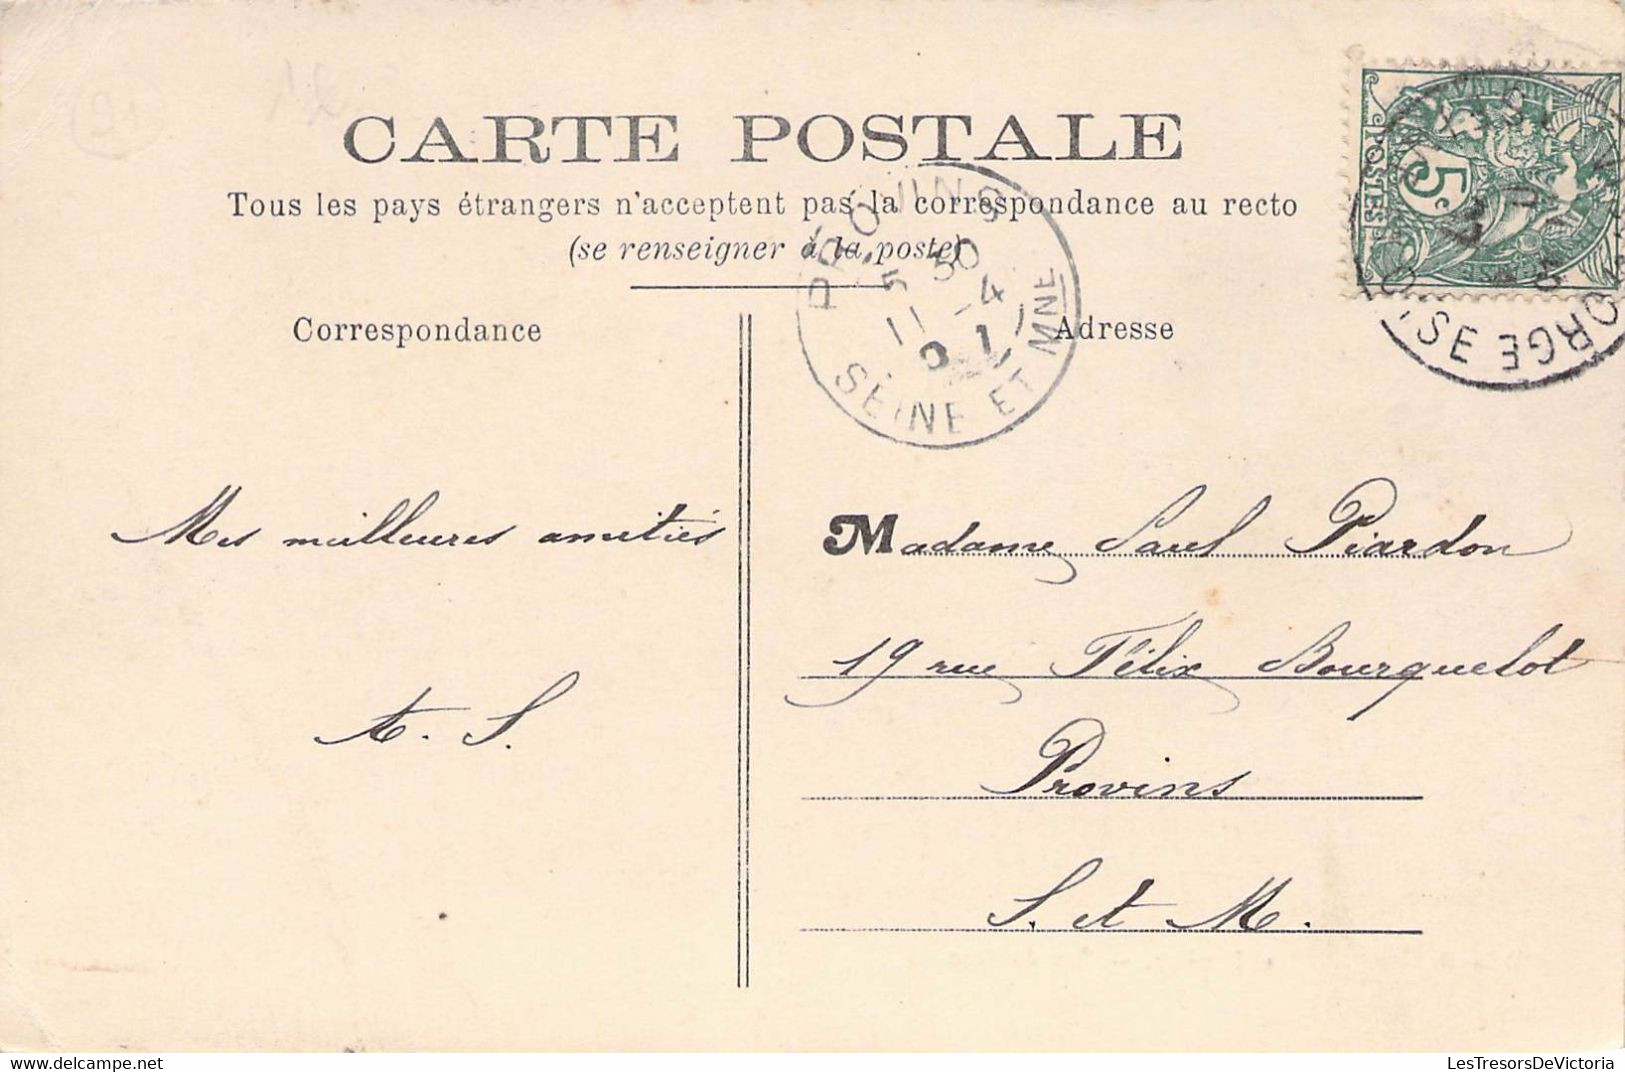 CARTE POSTALE
Tous les pays étrangers n'acceptent pas la correspondance au recto
(se renseigner à la poste)
Correspondance
Adresse
PROVINS
5 30
11 - 4
SEINE ET MNE
POSTES
5c
ORGE
OISE
Mes meilleures amitiés
A. S.
Madame Paul Piardon
19 rue Félix Bourquelot
Provins
S. et M.
91
LesTresorsDeVictoria